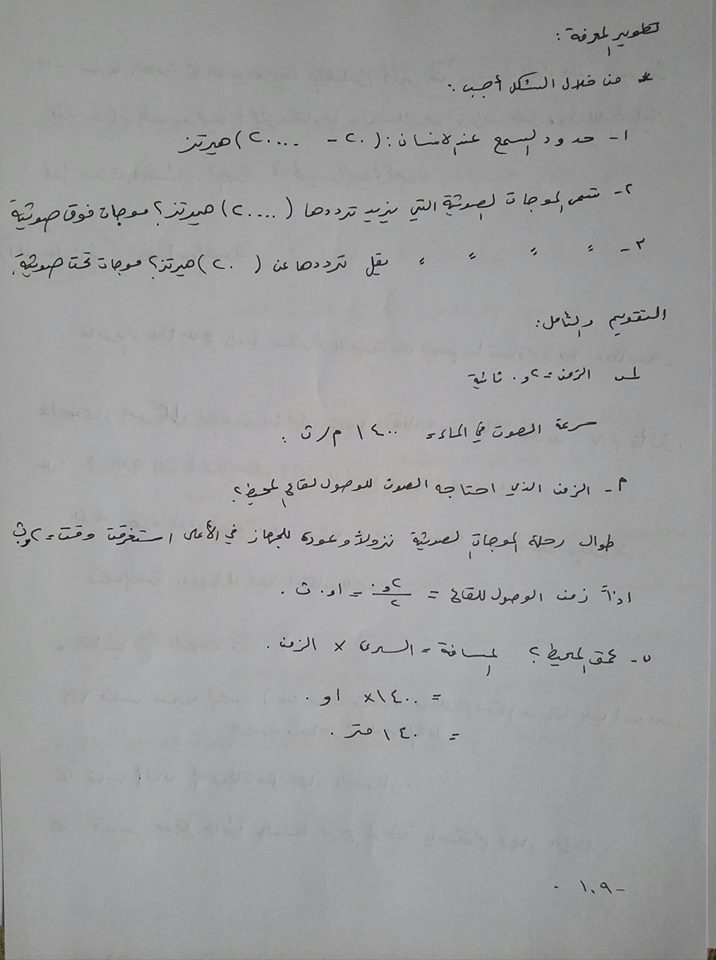 تطوير المعرفة:
* من خلال الشكل أجب:
١- حدود السمع عند الانسان: (٢٠ - ٢٠٠٠٠) هيرتز
٢- تسمى الموجات الصوتية التي يزيد ترددها (٢٠٠٠٠) هيرتز؟ موجات فوق صوتية
٣- " " " " يقل ترددها عن (٢٠) هيرتز؟ موجات تحت صوتية.
التقويم والتأمل:
الزمن = ٢و٠ ثانية
سرعة الصوت في الماء = ١٤٠٠ م/ث.
أ- الزمن الذي احتاجه الصوت للوصول لقاع المحيط؟
طوال رحلة الموجات الصوتية نزولاً وعودة للجهاز في الأعلى استغرقت وقت = ٢و٠ث
اذاً زمن الوصول للقاع = ٢و٠/٢ = ١و٠ ث.
ب- عمق المحيط؟ المسافة = السرعة × الزمن.
= ١٤٠٠ × ١و٠
= ١٤٠ متر.
-١٠٩-